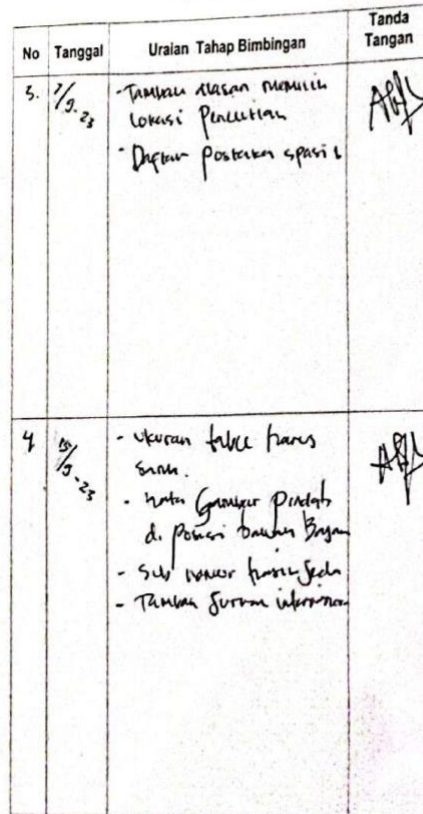 No Tanggal Uraian Tahap Bimbingan Tanda Tangan
3. 7/9-23 - Tambah alasan memilih
lokasi Penelitian
- Daftar Postaka spasi 1
4 15/9-23 - Ukuran table harus
sama.
- Gambar Pindah
di Posisi bawah Bagan
- Sub nomor harus
- Tambah